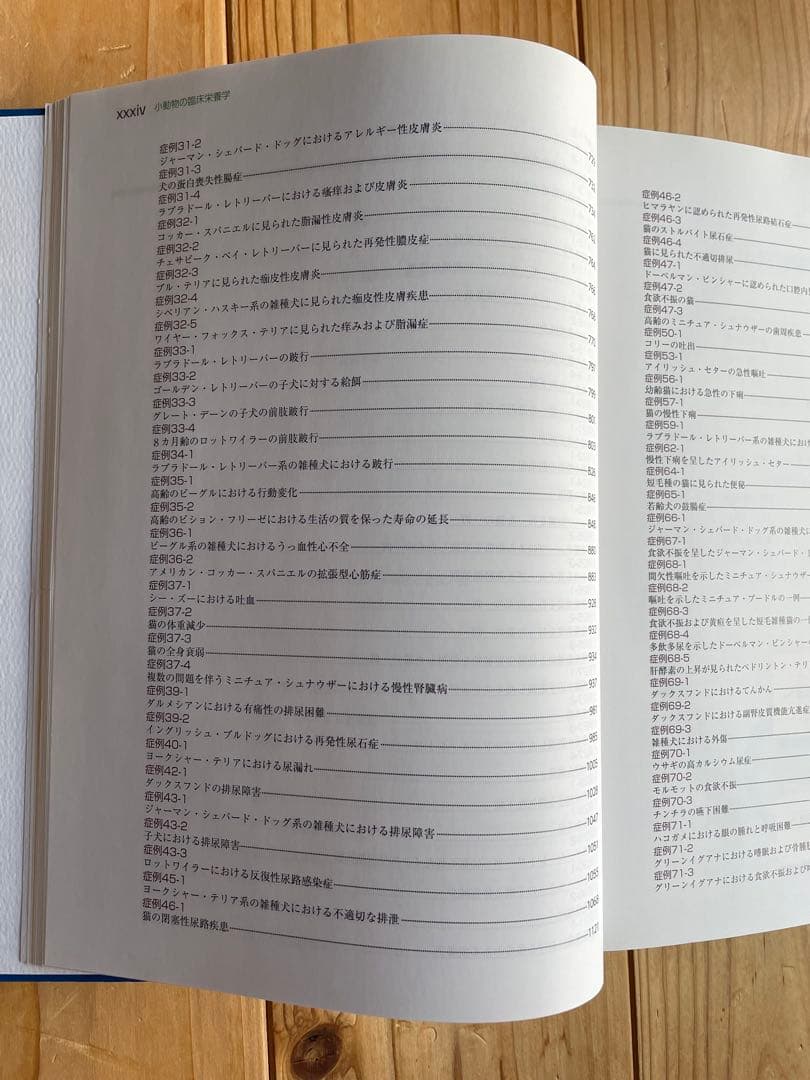 xxxiv 小動物の臨床栄養学
症例31-2
ジャーマン・シェパード・ドッグにおけるアレルギー性皮膚炎
症例31-3
犬の蛋白喪失性腸症
症例31-4
ラブラドール・レトリーバーにおける瘙痒および皮膚炎 734
症例32-1
コッカー・スパニエルに見られた脂漏性皮膚炎 762
症例32-2
チェサピーク・ベイ・レトリーバーに見られた再発性膿皮症 764
症例32-3
ブル・テリアに見られた痂皮性皮膚炎 766
症例32-4
シベリアン・ハスキー系の雑種犬に見られた痂皮性皮膚疾患 768
症例32-5
ワイヤー・フォックス・テリアに見られた痒みおよび脂漏症 770
症例33-1
ラブラドール・レトリーバーの跛行 797
症例33-2
ゴールデン・レトリーバーの子犬に対する給餌 799
症例33-3
グレート・デーンの子犬の前肢跛行 801
症例33-4
8カ月齢のロットワイラーの前肢跛行 803
症例34-1
ラブラドール・レトリーバー系の雑種犬における跛行 826
症例35-1
高齢のビーグルにおける行動変化 846
症例35-2
高齢のビション・フリーゼにおける生活の質を保った寿命の延長 848
症例36-1
ビーグル系の雑種犬におけるうっ血性心不全 880
症例36-2
アメリカン・コッカー・スパニエルの拡張型心筋症 883
症例37-1
シー・ズーにおける吐血 928
症例37-2
猫の体重減少 932
症例37-3
猫の全身衰弱 934
症例37-4
複数の問題を伴うミニチュア・シュナウザーにおける慢性腎臓病 937
症例39-1
ダルメシアンにおける有痛性の排尿困難 981
症例39-2
イングリッシュ・ブルドッグにおける再発性尿石症 985
症例40-1
ヨークシャー・テリアにおける尿漏れ 1005
症例42-1
ダックスフンドの排尿障害 1028
症例43-1
ジャーマン・シェパード・ドッグ系の雑種犬における排尿障害 1047
症例43-2
子犬における排尿障害 1051
症例43-3
ロットワイラーにおける反復性尿路感染症 1055
症例45-1
ヨークシャー・テリア系の雑種犬における不適切な排泄 1068
症例46-1
猫の閉塞性尿路疾患 1121
症例46-2
ヒマラヤンに認められた再発性尿路結石症
症例46-3
猫のストルバイト尿石症
症例46-4
猫に見られた不適切排尿
症例47-1
ドーベルマン・ピンシャーに認められた口腔内
症例47-2
食欲不振の猫
症例47-3
高齢のミニチュア・シュナウザーの歯周疾患
症例50-1
コリーの吐出
症例53-1
アイリッシュ・セターの急性嘔吐
症例56-1
幼齢猫における急性の下痢
症例57-1
猫の慢性下痢
症例59-1
ラブラドール・レトリーバー系の雑種犬におけ
症例62-1
慢性下痢を呈したアイリッシュ・セター
症例64-1
短毛種の猫に見られた便秘
症例65-1
若齢犬の鼓腸症
症例66-1
ジャーマン・シェパード・ドッグ系の雑種犬に
症例67-1
食欲不振を呈したジャーマン・シェパード・
症例68-1
間欠性嘔吐を示したミニチュア・シュナウザー
症例68-2
嘔吐を示したミニチュア・プードルの一例
症例68-3
食欲不振および黄疸を呈した短毛雑種猫の一
症例68-4
多飲多尿を示したドーベルマン・ピンシャーの
症例68-5
肝酵素の上昇が見られたベドリントン・テリ
症例69-1
ダックスフンドにおけるてんかん
症例69-2
ダックスフンドにおける副腎皮質機能亢進症
症例69-3
雑種犬における外傷
症例70-1
ウサギの高カルシウム尿症
症例70-2
モルモットの食欲不振
症例70-3
チンチラの嚥下困難
症例71-1
ハコガメにおける眼の腫れと呼吸困難
症例71-2
グリーンイグアナにおける嗜眠および骨
症例71-3
グリーンイグアナにおける食欲不振および